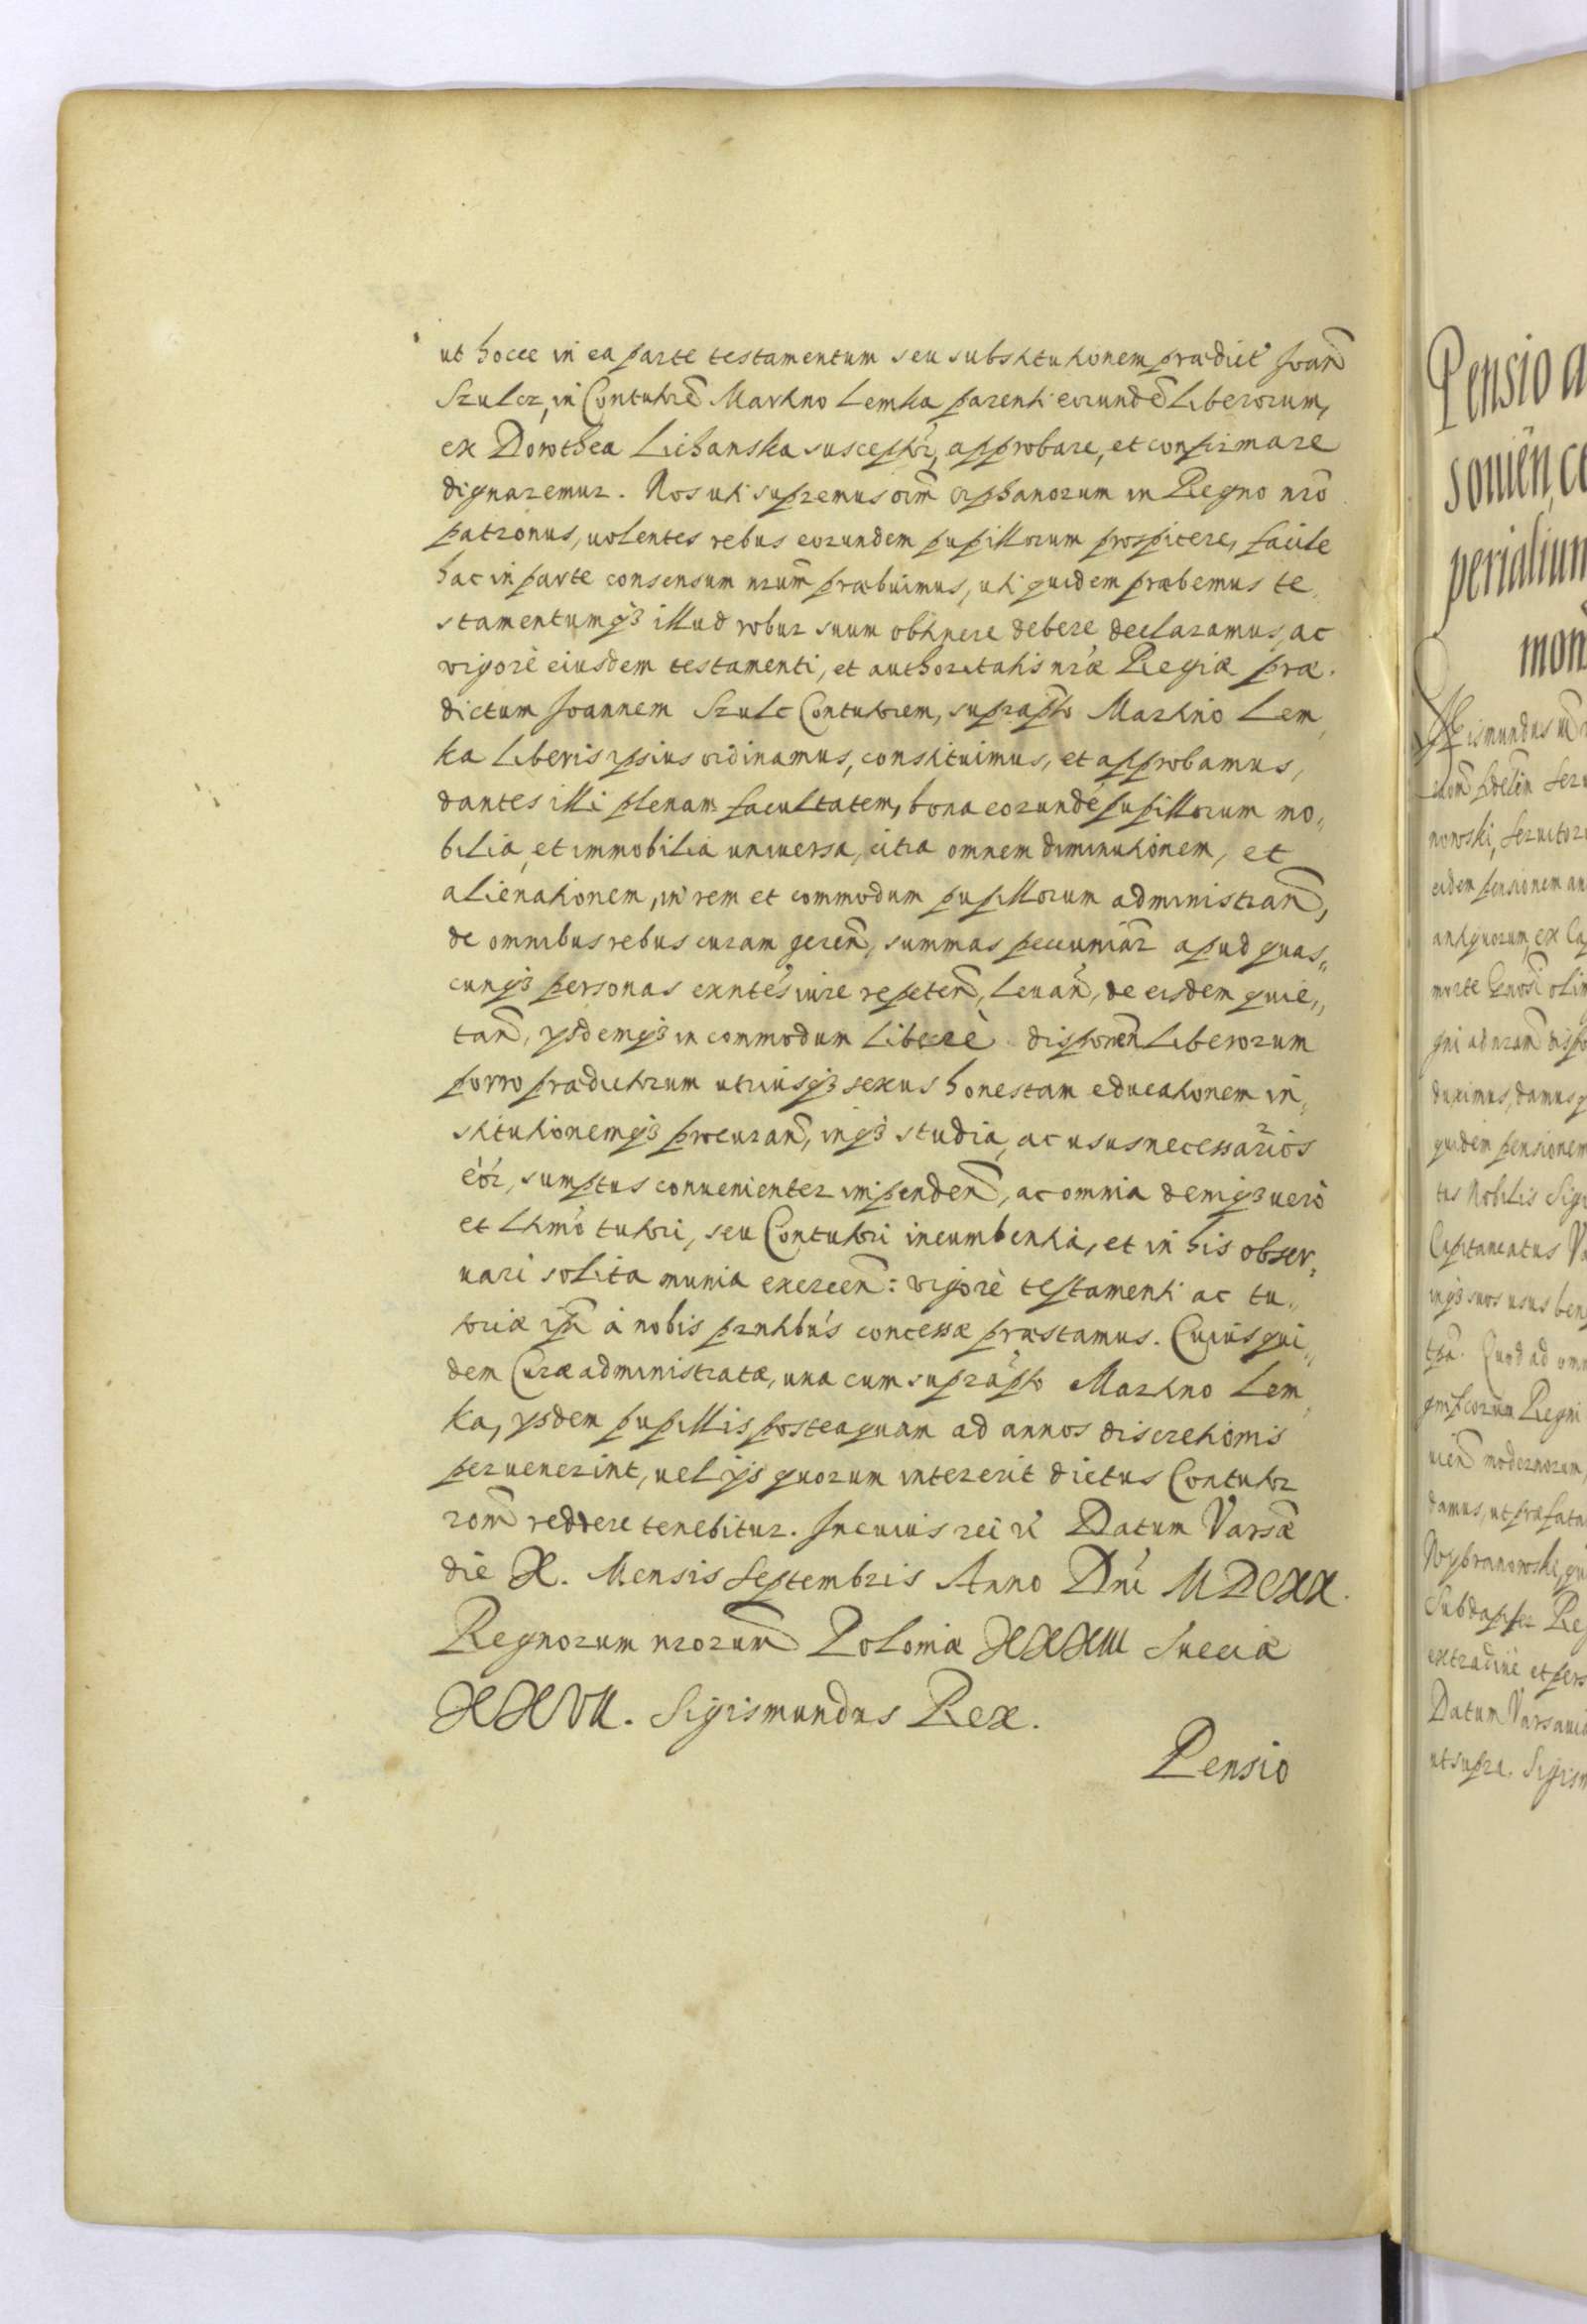 ut hocce in ea parte testamentum seu substitutionem prædict Joan̄
Szulcz, in Contutorē Martino Lemka parenti eorundē Liberorum,
ex Dorothea Lichanska suscepor, approbare, et confirmare
dignaremur. Nos uti supremus oīm orphanorum in Regno nrō
patronus, uolentes rebus eorundem pupillorum prospicere, facile
hac in parte consensum nrūm præbuimus, uti quidem præbemus te,
stamentumq3 illud robur suum obtinere debere declaramus, ac
vigore eiusdem testamenti, et authoritatis nrǽ Regiæ præ.
dictum Joannem Szulc Contutorem, suprap̄to Martino Lem,
ka Liberis ipsius ordinamus, constituimus, et approbamus,
dantes illi plenam facultatem, bona eorundē pupillorum mo,,
bilia, et immobilia uniuersa, citra omnem diminutionem, et
alienationem, in rem et commodum pupillorum administran̄,
de omnibus rebus curam geren̄, summas pecuniar̄ apud quas,,
cunq3 personas exntes iure repeten̄, Leuan̄, de eisdem quie,,
tan̄, ysdemq3 in commodum Libere disponen̄ Liberorum
porro prædictorum utriusq3 sexus honestam educationem in,
stitutionemq3 procuran̄, inq3 studia, ac usus necessarios
eor̄, sumptus conuenienter impenden̄, ac omnia deniq3 uero
et Ltmo tutori, seu Contutori incumbentia, et in his obser,
uari solita munia exercen̄: vigore testamenti ac tu,,
toriæ ip̄i à nobis prntibus concessæ præstamus. Cuius qui,,
dem Curæ administratæ, una cum suprap̄to Martino Lem,
ka, ysdem pupillis posteaquam ad annos discretionis
peruenerint, uel ijs quorum intererit dictus Contutor
rōm reddere tenebitur. In cuius rei Datum Varsæ
die X. Mensis Septembris Anno Dni MDCXX.
Regnorum nrorum Poloniæ XXXIII Sueciæ
XXVII. Sigismundus Rex.
Pensio
Pensio a
sonien, ce
perialium
mon
Sigismundus
nowski, Seruitori
eidem pensionem an
antiquorum, ex Ca
morte Gnosi olim
gni ad nram dispo
duximus, damus q
quidem pensionem
tus Nobilis Sigi
Capitaneatus Va
inq3 suos usus ben
Quod ad omn
gnificorum Regni
uien̄ modernorum,
damus, ut præfata
Wybranowski, qu
Subdapifer Reg
extradine et pers
Datum Varsauiæ
ut supra. Sigism